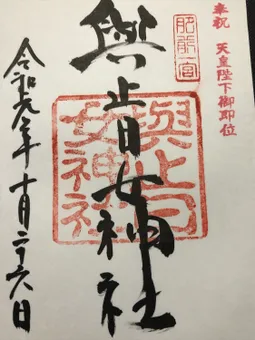 奉祝 天皇陛下御即位
肥前一宮
與止日女神社
與止日
女神社
令和元年十月二十六日